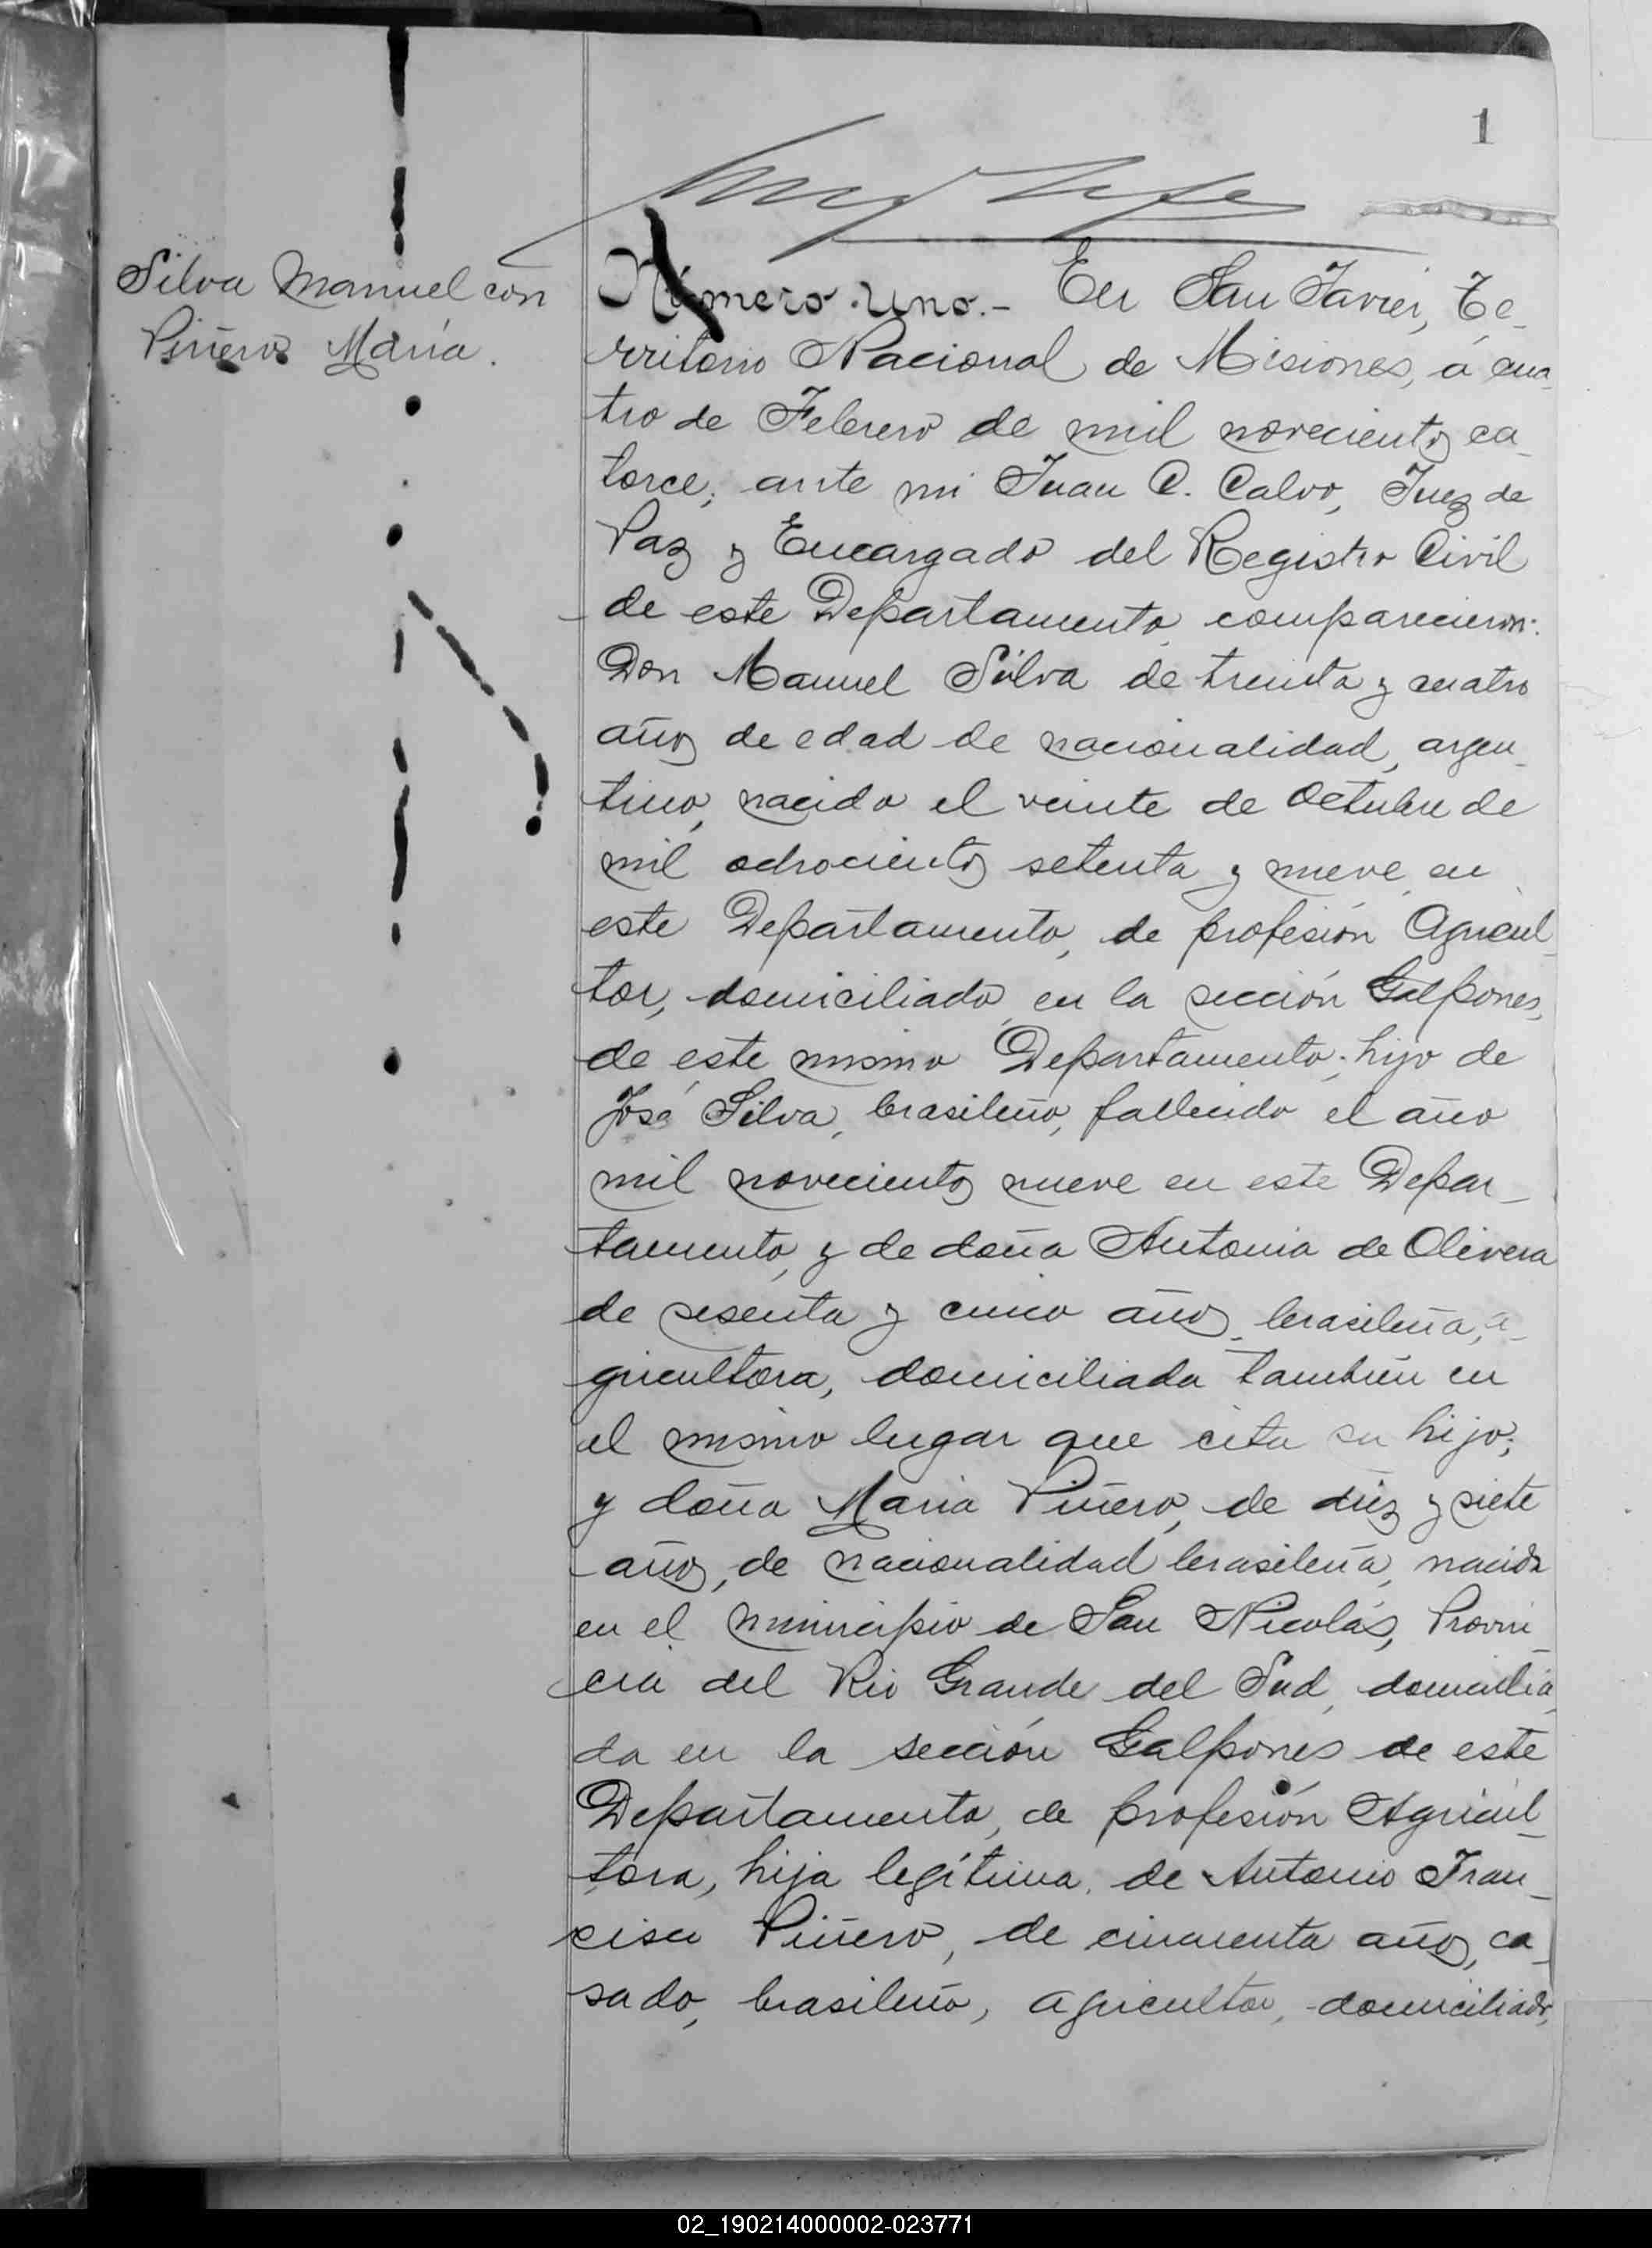 1
Silva Manuel con
Piñero María.
Número uno.- En San Javier, Te-
rritorio Nacional de Misiones, á cua-
tro de Febrero de mil novecientos ca-
torce; ante mi Juan C. Calvo, Juez de
Paz y Encargado del Registro Civil
de este Departamento comparecieron:
Don Manuel Silva de treinta y cuatro
años de edad de nacionalidad, argen-
tino, nacido el veinte de Octubre de
mil ochocientos setenta y nueve en
este Departamento, de profesión Agricul-
tor, domiciliado en la sección Galpones,
de este mismo Departamento; hijo de
José Silva, brasileño, fallecido el año
mil novecientos nueve en este Depar-
tamento, y de doña Antonia de Olivera
de sesenta y cinco años, brasileña, a-
gricultora, domiciliada también en
el mismo lugar que cita su hijo;
y doña María Piñero, de diez y siete
años, de nacionalidad brasileña, nacida
en el municipio de San Nicolás, Provin-
cia del Rio Grande del Sud, domicilia-
da en la sección Galpones de este
Departamento, de profesión Agricul-
tora, hija legítima, de Antonio Fran-
cisco Piñero, de cincuenta años, ca-
sado, brasileño, agricultor, domiciliado,
02_190214000002-023771